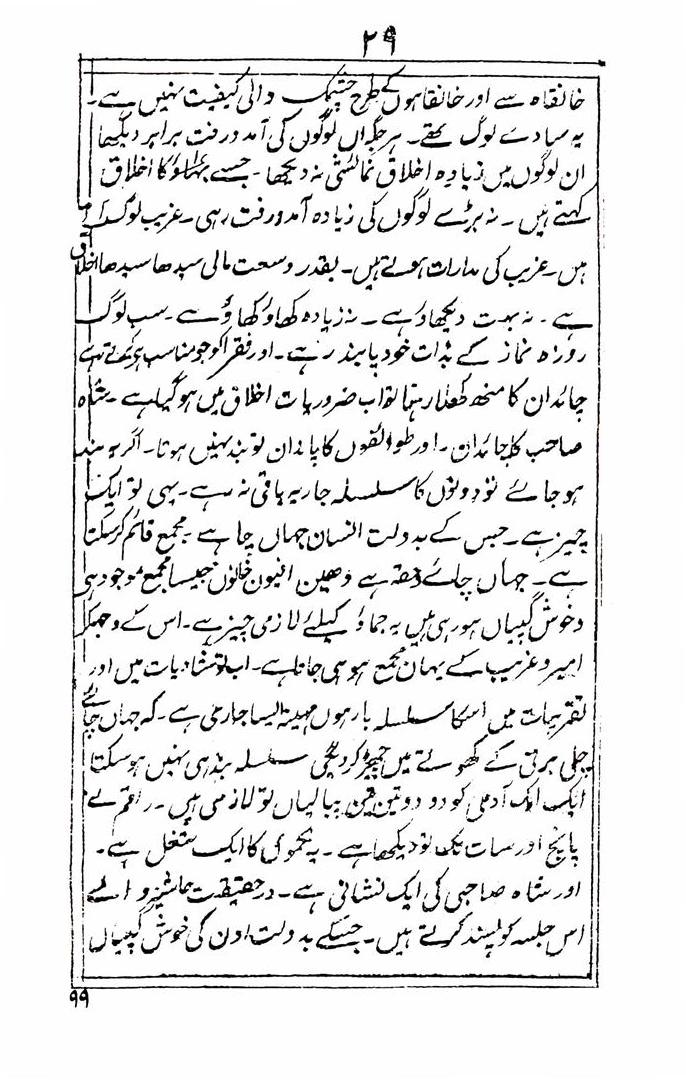 ۲۹
خانقاہ سے اور خانقاہوں کے طرح چشمک والی کیفیت نہیں ہے۔
یہ سیادے لوگ تھے۔ ہر جگہ ان لوگوں کی آمد و رفت برابر دیکھا
ان لوگوں میں زیادہ اخلاق نمائشی نہ دیکھا۔ جسے کا اخلاق
کہتے ہیں۔ نہ بڑے لوگوں کی زیادہ آمد و رفت رہی۔ غریب لوگ
ہیں۔ غریب کی مدارات ہوتے ہیں۔ بقدر وسعت مالی سیدھا سیدھا اخلاق
ہے۔ نہ بہت دیکھاوُ ہے۔ نہ زیادہ کھاوُ کھاوُ ہے۔ سب لوگ
روزہ نماز کے بذات خود پابند رہے۔ اور فقرا کو جو مناسب ہے
چائدان کا منھ کھلا رہنا تو اب ضروریات اخلاق میں ہو گیا ہے۔ شاہ
صاحب کا چائدان۔ اور طوائفوں کا پاندان تو بند نہیں ہوتا۔ اگر یہ بند
ہو جائے تو دونوں کا سلسلہ جاریہ باقی نہ رہے۔ یہی تو ایک
چیز ہے۔ جس کے بدولت انسان جہاں چاہے۔ مجمع قائم کر سکتا
ہے۔ جہاں چائے حقہ ہے وھین افیون خانوں جیسا مجمع موجود ہے
و خوش گپیاں ہو رہی ہیں یہ جماوُ کیلئے لازمی چیز ہے۔ اس کے وجہکر
امیر و غریب کے یہاں مجمع ہو ہی جاتا ہے۔ اب تو شادیات میں اور
تقریبات میں اسکا سلسلہ بارہوں مہینہ ایسا جاری ہے۔ کہ جہاں چائے
چلی برتن کے کھولتے میں سلسلہ بند ہی نہیں ہو سکتا
ایک ایک آدمی کو دو دو تین تین پیالیاں تو لازمی ہیں۔ راقم نے
پانچ اور سات تک تو دیکھا ہے۔ یہ نکموں کا ایک شغل ہے۔
اور شاہ صاحبی کی ایک نشانی ہے۔ درحقیقت والے
اس جلسہ کو پسند کرتے ہیں۔ جسکے بدولت اون کی خوش گپیاں
۹۹